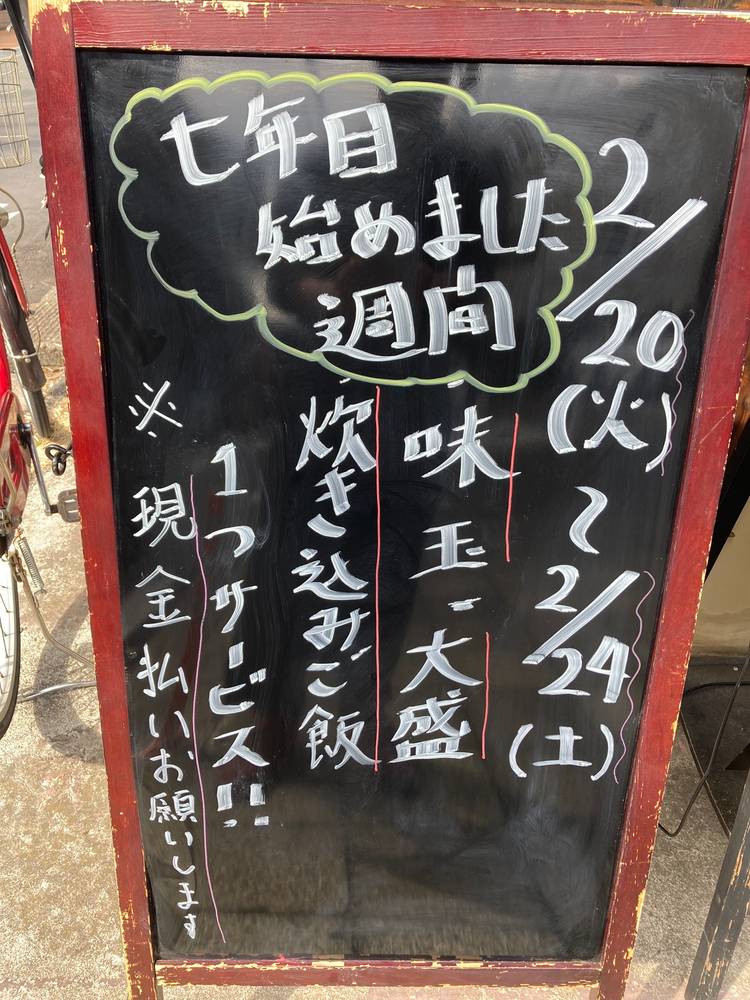 七年目
始めました
週間
2/20(火)〜2/24(土)
味玉・大盛
炊き込みご飯
1つサービス!!
※現金払いお願いします